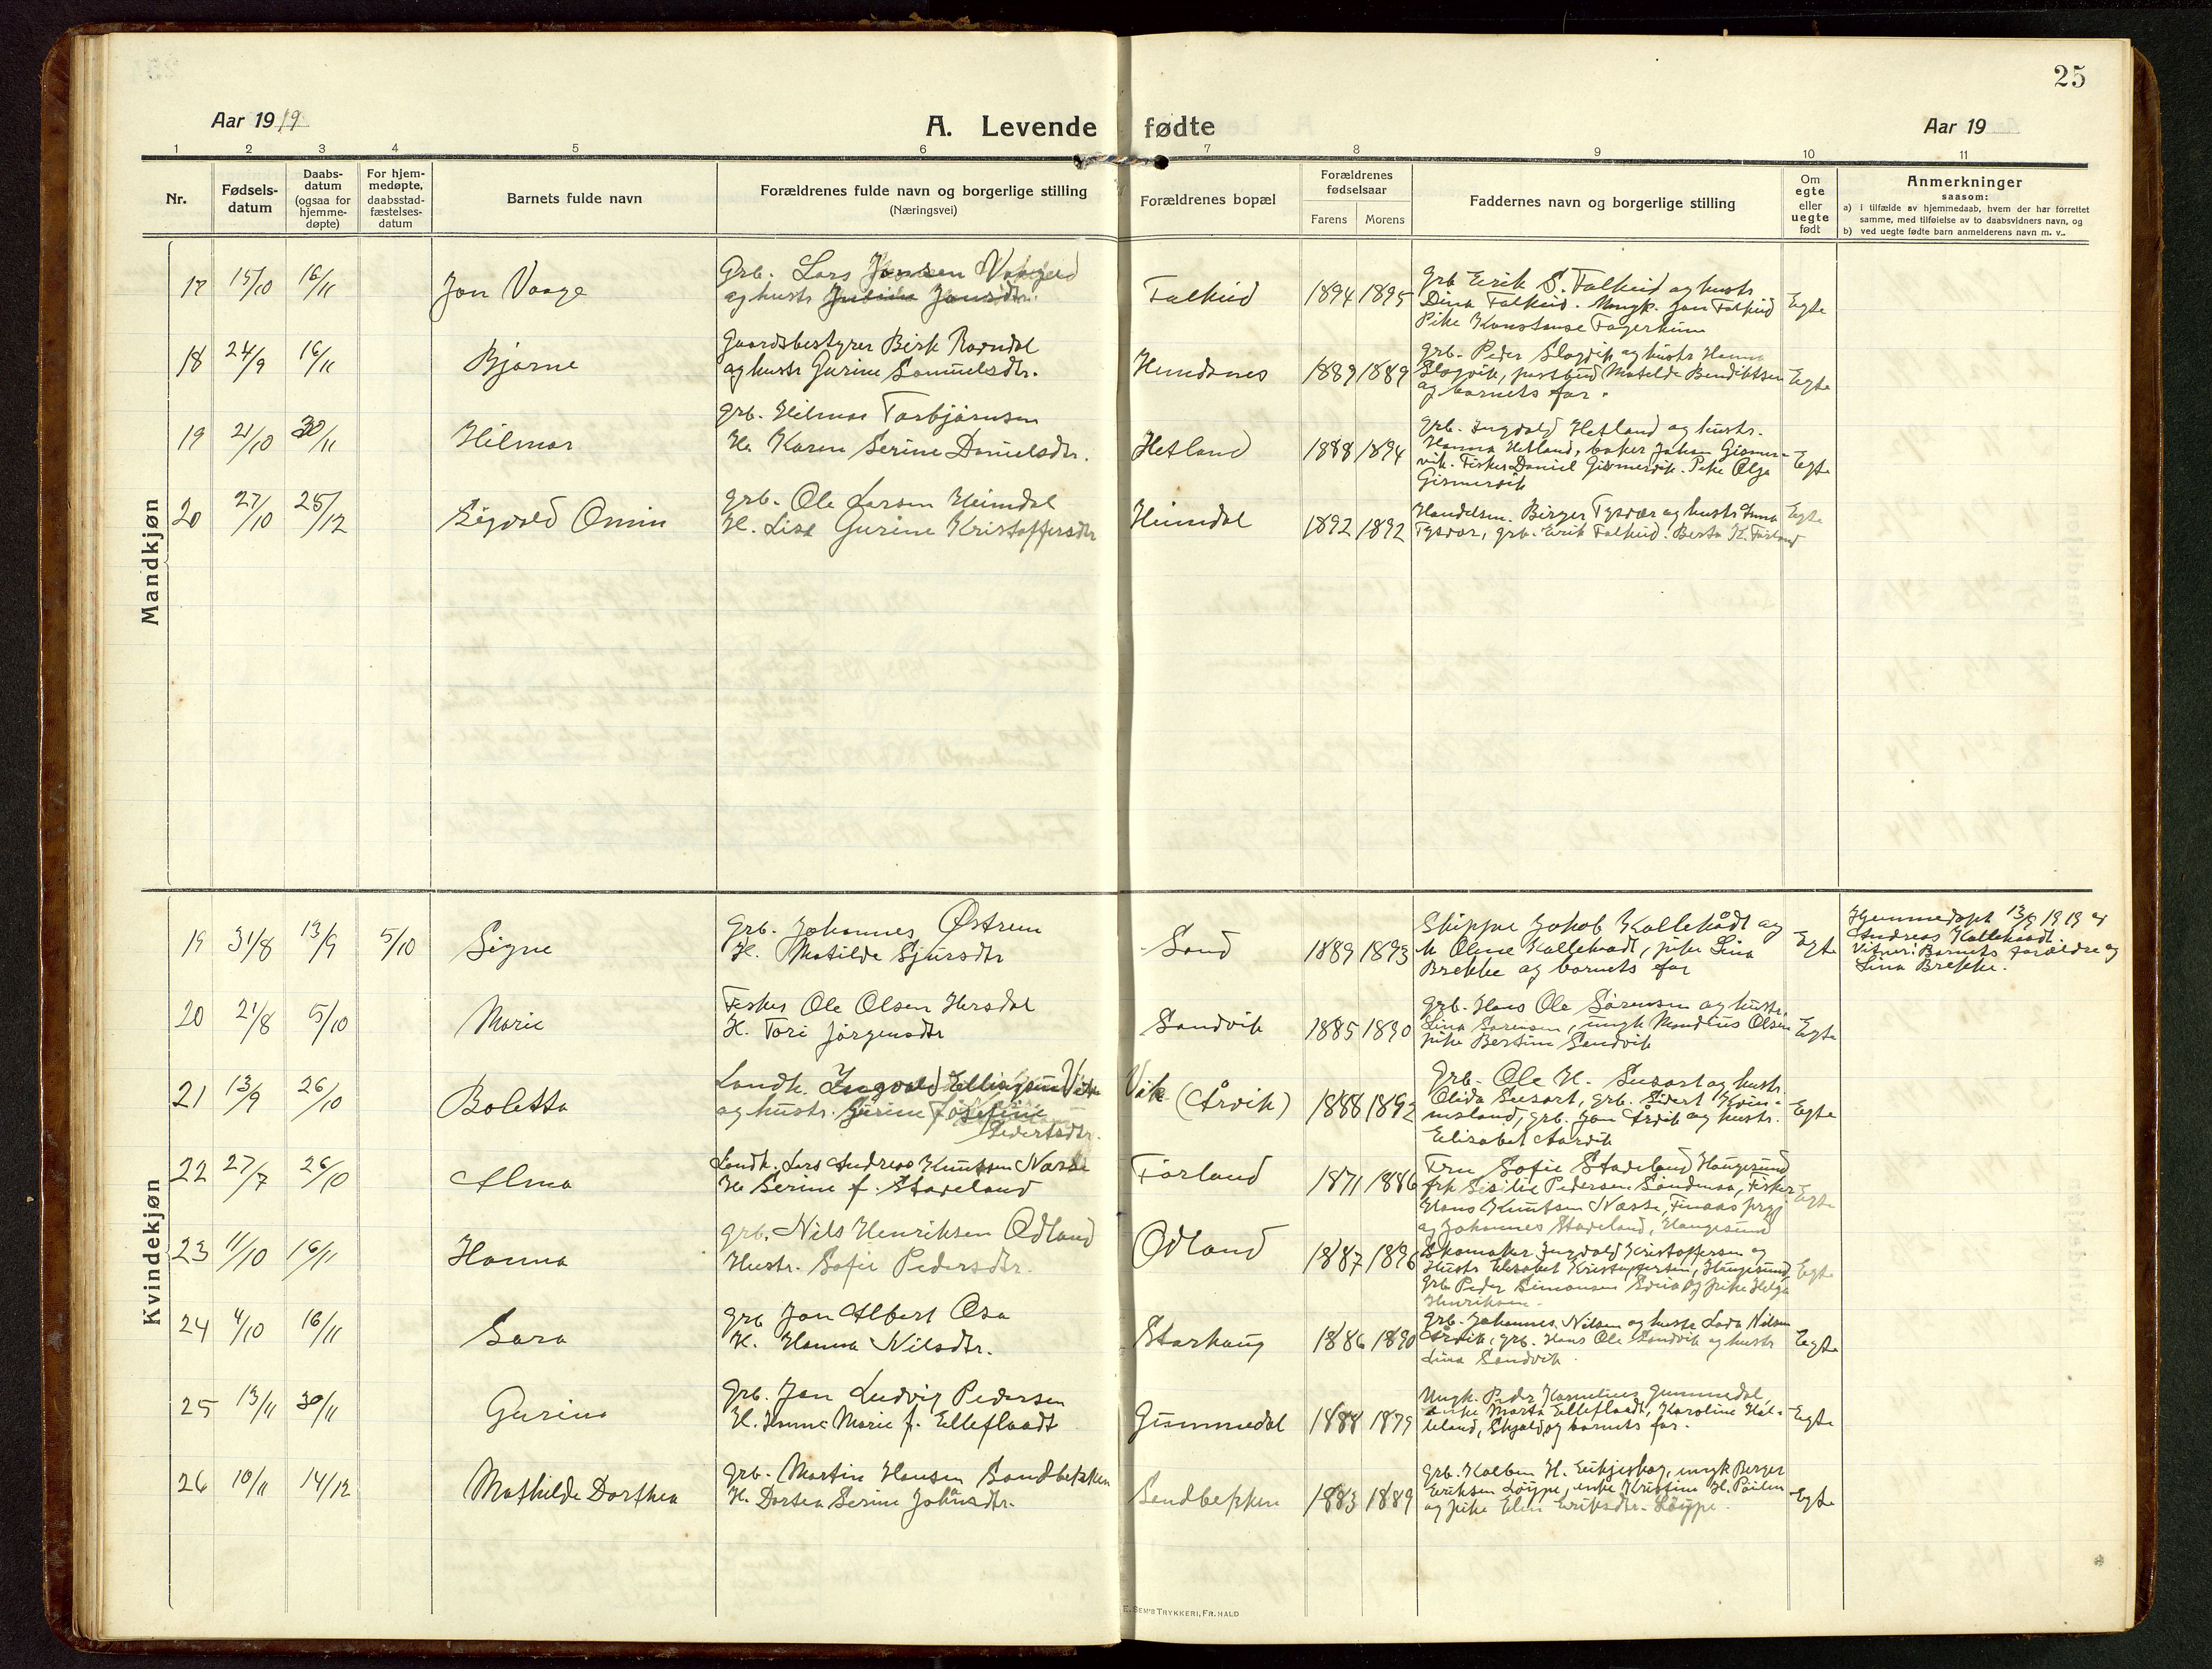 25
Aar 1919
A. Levende fødte
Aar 19
1 2 3 4 5 6 7 8 9 10 11
Nr.
Fødsels-
datum
Daabs-
datum
(ogsaa for
hjemme-
døpte)
For hjem-
medøpte,
daabsstad-
fæstelses-
datum
Barnets fulde navn
Forældrenes fulde navn og borgerlige stilling
(Næringsvei)
Forældrenes bopæl
Forældrenes
fødselsaar
Farens Morens
Faddernes navn og borgerlige stilling
Om
egte
eller
uegte
født
Anmerkninger
saasom:
a) i tilfælde av hjemmedaab, hvem der har forrettet
samme, med tilføielse av to daabsvidners navn, og
b) ved uegte fødte barn anmelderens navn m. v..
Mandkjøn
17 15/10 16/11 Jon Vaage
Grb. Lars
og hustr Jonsdtr.
Falkeid 1894 1895
Grb Eirik S. Falkeid og hustr
Dina Falkeid. Ungk. Jon Falkeid
Pike Konstanse Fagerheim
Egte
18 24/9 16/11 Bjarne
Gaardsbestyrer Birk
og hustr Gurine Samuelsdtr.
Hemdanes 1889 1889
grb. Peder Slogvik og hustr Hanna
Slogvik, postbud Matilde Bendiktsen
og barnets far.
Egte
19 21/10 30/11 Hilmar
grb. Hilmar Torbjørnsen
H. Karen Serine Danielsdtr.
Hetland 1888 1894
grb. Ingvald Hetland og hustr.
Hanna Hetland, baker Johan Gismer-
vik. Fisker Daniel Gismervik. Pike Olga
Gismervik
Egte
20 27/10 25/12 Sigvald Omin
grb. Ole Larsen Heimdal
H. Lisa Gurine Kristoffersdtr
Heimdal 1892 1892
Handelsm. Birger Tysvær og hustr Anna
Tysvær, grb. Erik Falkeid. Berta K. Førland
Egte
Kvindekjøn
19 31/8 13/9 5/10 Signe
Grb. Johannes Østrem
H. Matilde Sjursdtr
Sand 1889 1893
Skipper Jakob Kallekådt og
h Oline Kallekodt, pike Lina
Brekke og barnets far
Egte
Hjemmedøpt 13/9 1919 av
Andreas Kallekodt.
Vitner: Barnets forældre og
Lina Brekke.
20 21/8 5/10 Marie
Fisker Ole Olsen Hersdal
H. Tori Jørgensdtr
Sandvik 1885 1890
grb. Hans Ole Sørensen og hustr.
Lina Sørensen, ungk Mandius Olsen
pike Bertine Sandvik
Egte
21 13/9 26/10 Boletta
Landh. Ingvald Ellingsen Vik
og hustr. Gurine Josefine
Sivertsdtr.
Vik (Årvik) 1888 1892
Grb. Ole H. Susort og hustr
Olida Susort, grb. Sivert
grb. Jon Årvik og hustr.
Elisabet Aarvik
Egte
22 27/7 26/10 Alma
Landh. Lars Andreas Knutsen Næsse
H. Serine f. Stadeland
Førland 1871 1886
Fru Sofie Stadeland Haugesund
frk Sisilie Pedersen Søndenaa, Fisker
Hans Knutsen Næsse,
og Johannes Stadeland, Haugesund
Egte
23 11/10 16/11 Hanna
grb. Nils Henriksen Ødland
Hustr. Sofie Pedersdtr.
Ødland 1887 1896
Skomaker Ingvald Kristoffersen og
Hustr Elisabet Kristoffersen, Haugesund,
grb Peder Simonsen og pike Helga
Henriksen.
Egte
24 4/10 16/11 Sara
grb Jon Albert Osa
H. Hanna Nilsdtr.
Starhaug 1886 1890
grb. Johannes Nilsen og hustr Lava Nilsen
Årvik, grb. Hans Ole Sandvik og hustr
Lina Sandvik.
Egte
25 13/11 30/11 Gurine
Grb. Jon Ludvig Pedersen
H. Marie f. Elleflaadt
Gummedal 1888 1879
Ungk. Peder Kornelius Gummedal,
enke Marta Elleflaadt, Karoline Hal-
leland, Skjold og barnets far.
Egte
26 10/11 14/12 Mathilde Dorthea
grb. Martin Hansen Sandbekken
H. Dortea Serine Johansdtr.
Sandbekken 1883 1889
grb. Kolben H. Eikjeskog, ungk Berger
Eriksen Løype, enke Kristine H.
og pike Elen Eriksdtr. Løype.
Egte
E. SEM'S TRYKKERI, FR.HALD